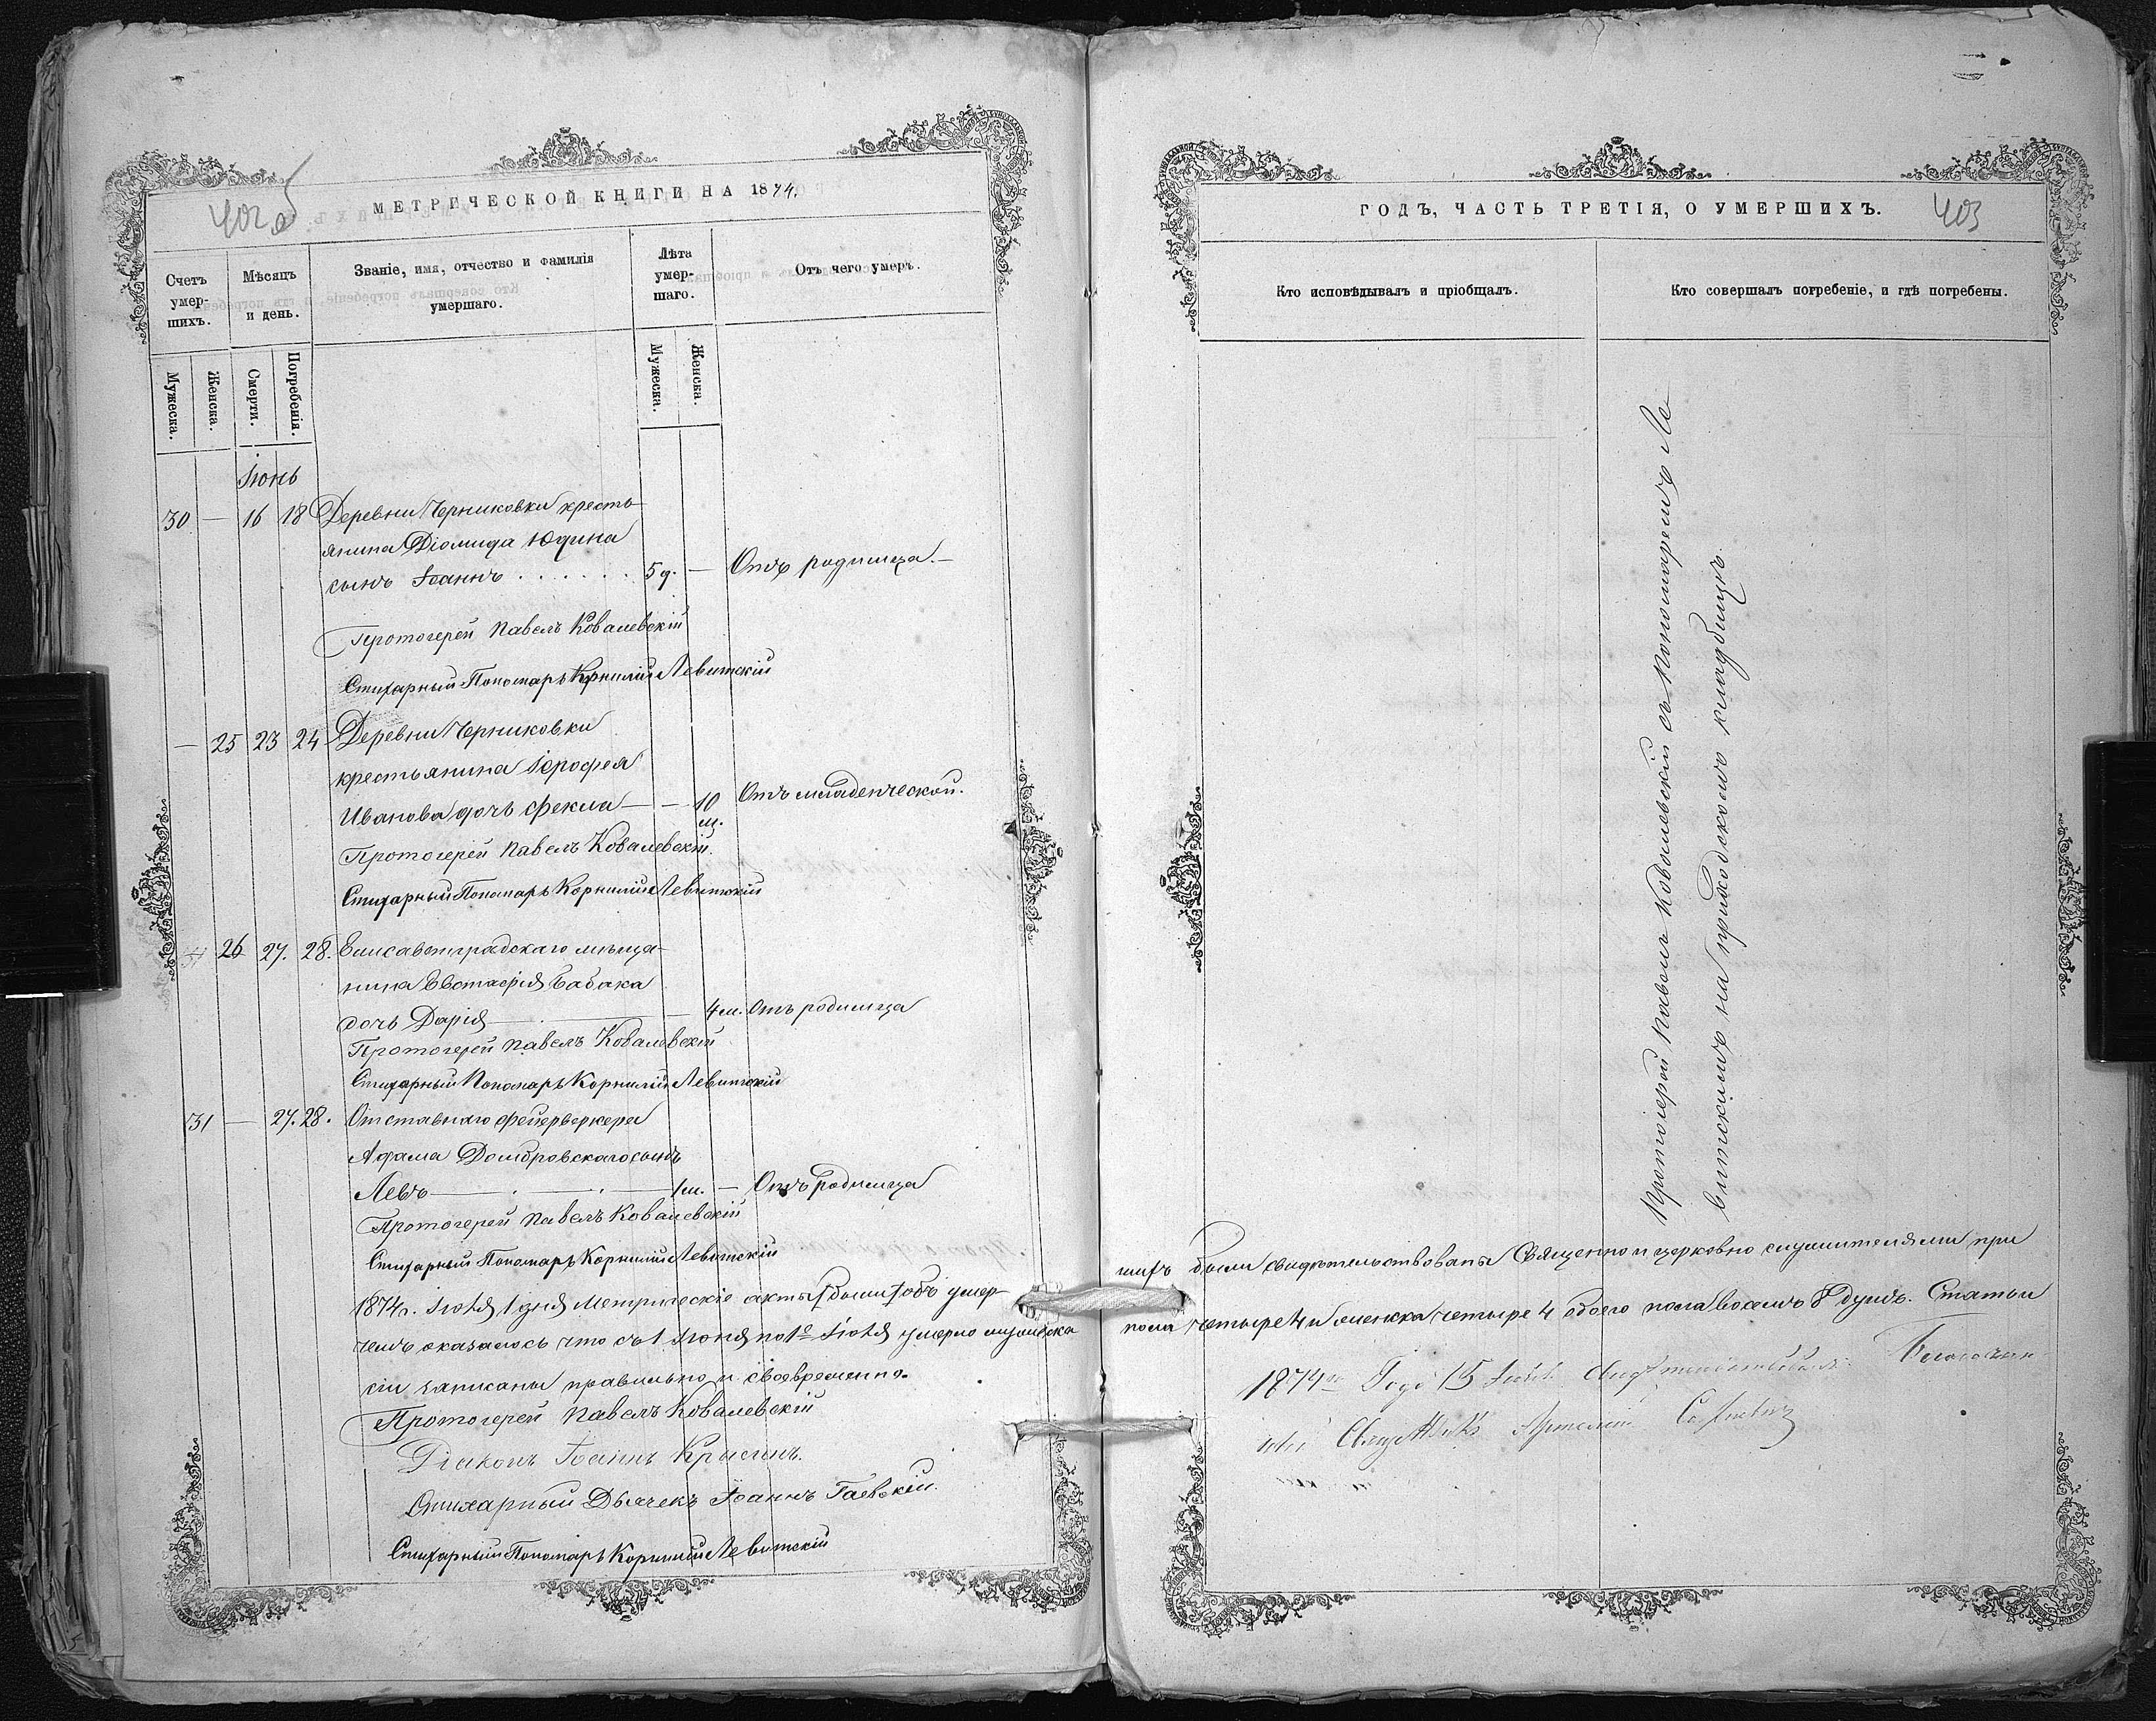 402 об
МЕТРИЧЕСКОЙ КНИГИ НА 1874.
Счетъ умер-шихъ.
Мѣсяцъ и день.
Званіе, имя, отчество и фамилія умершаго.
Лѣта умер-шаго.
Отъ чего умеръ.
Мужеска.
Женска.
Смерти.
Погребенія.
Мужеска.
Женска.
Іюнь
30 — 16 18 Деревни Черниковки кресть-
янина Діомида Юдина
сынъ Іоаннъ . . . . . . 5 д. — Отъ родимца. —
Протоіерей Павелъ Ковалевскій
Стихарный Пономарь Корнилій Левитскій
— 25 23 24 Деревни Черниковки
крестьянина Іерофея
Иванова дочь Фекла — — 10 м. Отъ младенческой.
Протоіерей Павелъ Ковалевскій.
Стихарный Пономарь Корнилій Левитскій
26 27. 28. Елисаветградскаго мѣща-
нина Евстафія Бабака
дочь Дарія — — 4 м. Отъ родимца
Протоіерей Павелъ Ковалевскій
Стихарный Пономарь Корнилій Левитскій
31 — 27. 28. Отставнаго фейерверкера
Адама Домбровскаго сынъ
Левъ — . — . — 1 м. — Отъ родимца
Протоіерей Павелъ Ковалевскій
Стихарный Пономарь Корнилій Левитскій
1874 г. Іюля 1 дня Метрическіе акты были объ умер-
чемъ оказалось что съ 1 Іюня по 1е Іюля умерло мужеска
сіи записаны правильно и своевременно.
Протоіерей Павелъ Ковалевскій
Діаконъ Іоаннъ
Стихарный Дьячекъ Іоаннъ Гаевскій.
Стихарный Пономарь Корнилій Левитскій
ГОДЪ, ЧАСТЬ ТРЕТІЯ, О УМЕРШИХЪ.
403
Кто исповѣдывалъ и пріобщалъ.
Кто совершалъ погребеніе, и гдѣ погребены.
Протоіерей Павелъ Ковалевскій съ Пономаремъ Ле-
витскимъ на приходскомъ кладбищѣ
шихъ были свидѣтельствованы Священно и церковно служителями при
пола четыре 4 и женска четыре 4 обоего пола восемь 8 душъ. Статьи
1874 го Года 15 Іюля